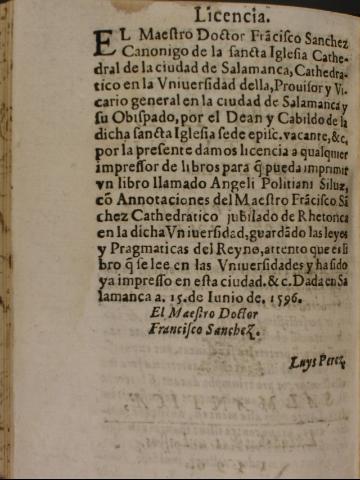 Licencia.
EL Maestro Doctor Frãcisco Sanchez
Canonigo de la sancta Iglesia Cathe-
dral de la ciudad de Salamanca, Cathedra-
tico en la Vniuersidad della, Prouisor y Vi-
cario general en la ciudad de Salamanca y
su Obispado, por el Dean y Cabildo de la
dicha sancta Iglesia sede episc. vacante, &c,
por la presente damos licencia a qualquier
impressor de libros para q̃ pueda imprimir
vn libro llamado Angeli Politiani Siluæ,
cõ Annotaciones del Maestro Frãcisco Sã
chez Cathedratico jubilado de Rhetorica
en la dicha Vniuersidad, guardãdo las leyes
y Pragmaticas del Reyno, attento que es li
bro q̃ se lee en las Vniuersidades y ha sido
ya impresso en esta ciudad. &c. Dada en Sa
lamanca a. 15. de Iunio de. 1596.
El Maestro Doctor
Francisco Sanchez.
Luys Perez.